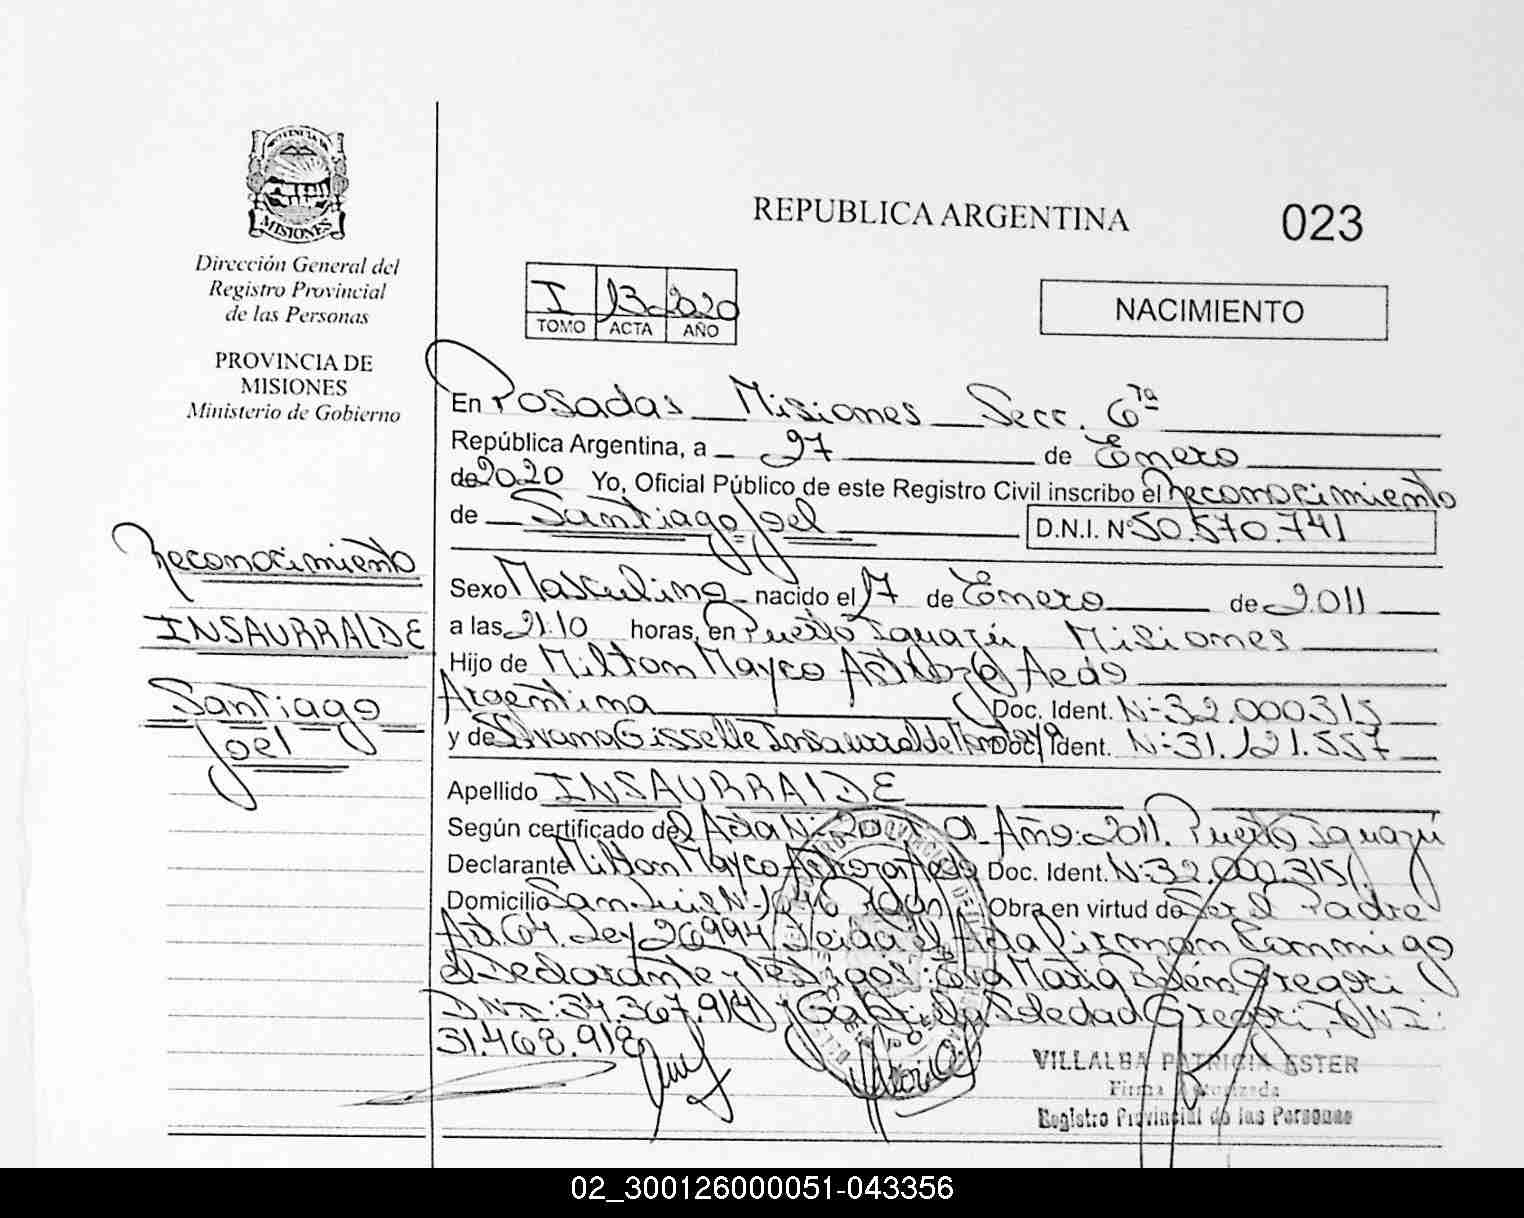 PROVINCIA DE
MISIONES
Dirección General del
Registro Provincial
de las Personas
PROVINCIA DE
MISIONES
Ministerio de Gobierno
Reconocimiento
INSAURRALDE
Santiago
Joel
REPUBLICA ARGENTINA
023
I 13 2020
TOMO ACTA AÑO
NACIMIENTO
En Posadas Misiones Secc. 6ta
República Argentina, a 27 de Enero
de 2020 Yo, Oficial Público de este Registro Civil inscribo el Reconocimiento
de Santiago Joel D.N.I. Nº 50.570.741
Sexo Masculino nacido el 17 de Enero de 2011
a las 21:10 horas, en Puerto Iguazú, Misiones
Hijo de Milton Mayco Aedo
Argentina Doc. Ident. Nº 32.000315
y de Silvana Gisselle Insaurralde Doc. Ident. Nº 31.121.557
Apellido INSAURRALDE
Según certificado del Acta Nº Año: 2011. Puerto Iguazú
Declarante Milton Mayco Aedo Doc. Ident. Nº 32.000.315
Domicilio San Luis Nº 1646 Obra en virtud de Ser el Padre
Art. 64. Ley 26994 Leida el Acta firman Conmigo
el Declarante y Testigos: María Belén Gregori
DNI: 34.367.914 y Gabriela Soledad Gregori, DNI:
31.468.918
VILLALBA PATRICIA ESTER
Firma Autorizada
Registro Provincial de las Personas
02_300126000051-043356